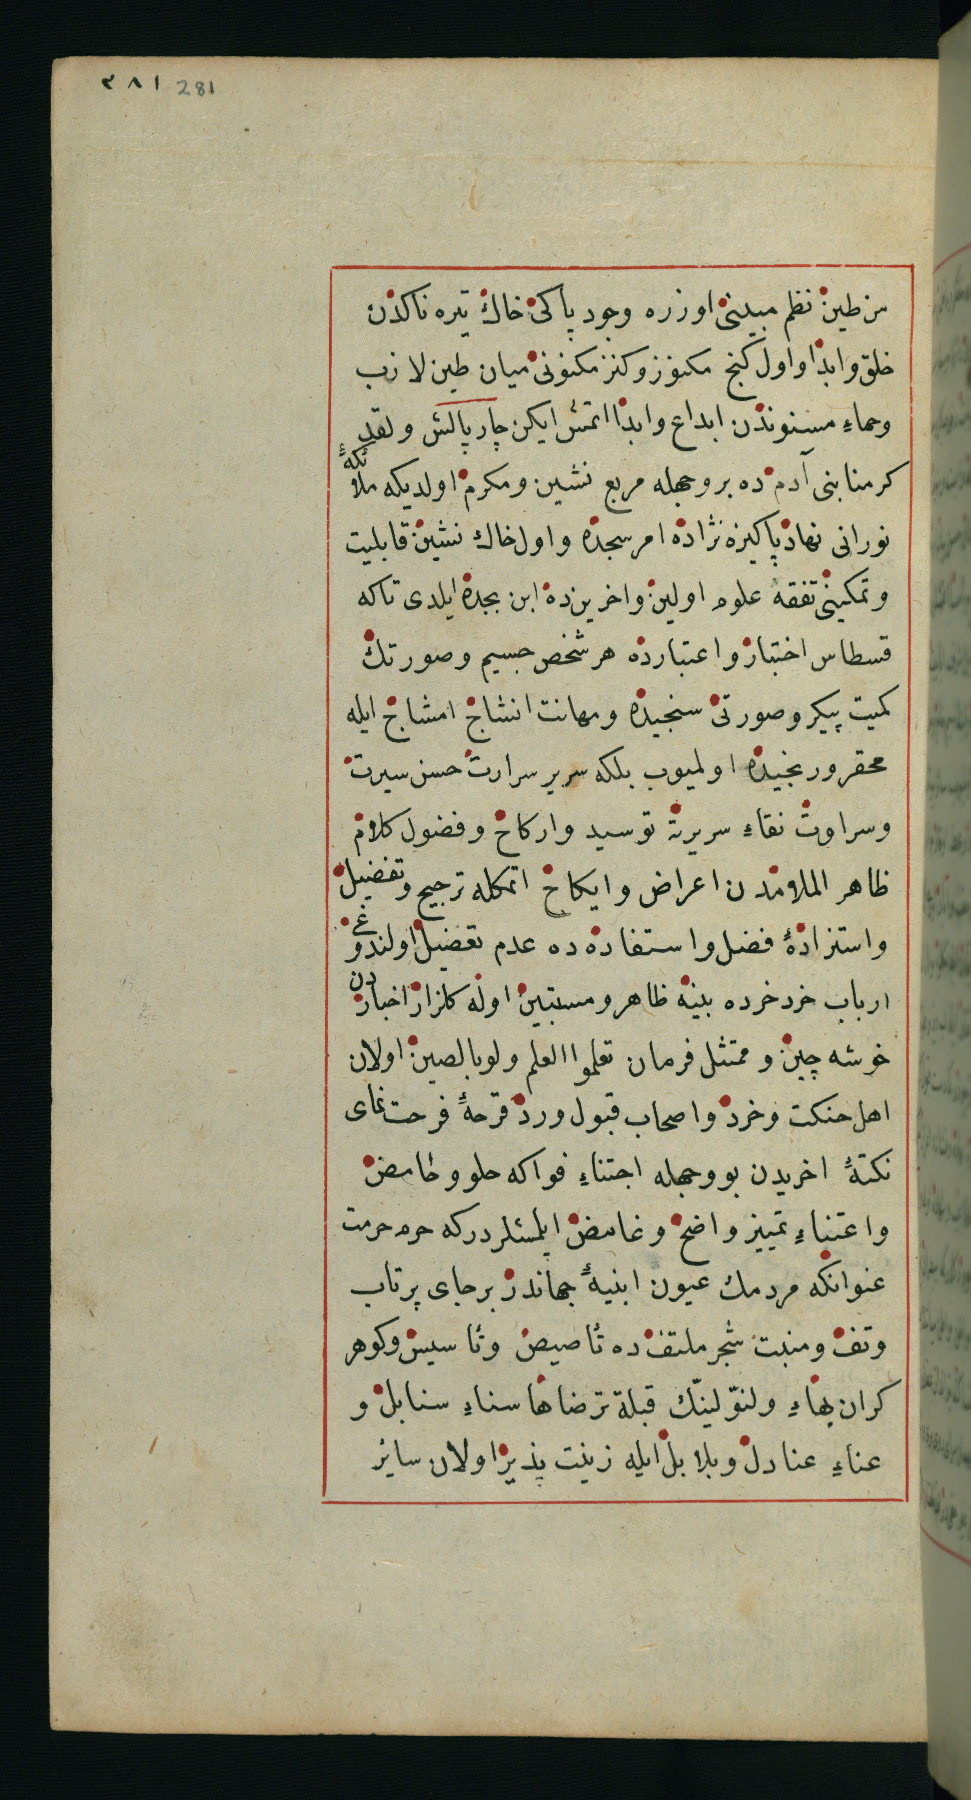 ٢٨١ 281
من طین نظم مبینی اوزره وجود پاکی خاك تیره ناکدن
خلق و ابدا و اول کنج مکنوز و کنز مکنونی میان طین لازب
وحماء مسنوندن ابداع و ابدا اتمش ایکن چار پالش ولقد
کرمنا بنی آدم ده بر وجهله مربع نشین و مکرم اولدیکه ملائکهٔ
نورانی نهاد پاکیزه نژاده امر سجده و اول خاك نشین قابلیت
و تمکینی تفقه علوم اولین و اخرین ده ابن بجده ایلدی تا که
قسطاس اختبار و اعتبارده هر شخص جسیم و صورتك
کمیت پیکر و صورتی سنجیده و مهانت انشاج امشاج ایله
محقر و رنجیده اولمیوب بلکه سریر سرارت حسن سیرت
وسراوت نقاء سریرته توسید و ارکاح و فضول کلام
ظاهر الملامدن اعراض و ایکاح اتمکله ترجیح و تفضیل
و استزادهٔ فضل و استفاده ده عدم تفضیل اولندوغی
ارباب خرد خرده بینه ظاهر و مستبین اوله کلزار اخباردن
خوشه چین و ممتثل فرمان تعلموا العلم ولو بالصین اولان
اهل حنکت و خرد و اصحاب قبول و رد قرحهٔ فرحت نمای
نکتهٔ اخریدن بو وجهله اجتناء فواکه حلو و حامض
و اعتناء تمییز واضح و غامض ایلمشلردرکه حرم حرمت
عنوانکه مردمك عیون ابنیهٔ جهاندر بر جای پرتاب
وتف و منبت شجر ملتف ده تأصیص و تأسیس و کوهر
کران بهاء ولنولینك قبلة ترضاها سناء سنابل و
عناء عنادل و بلابل ایله زینت پذیر اولان سائر